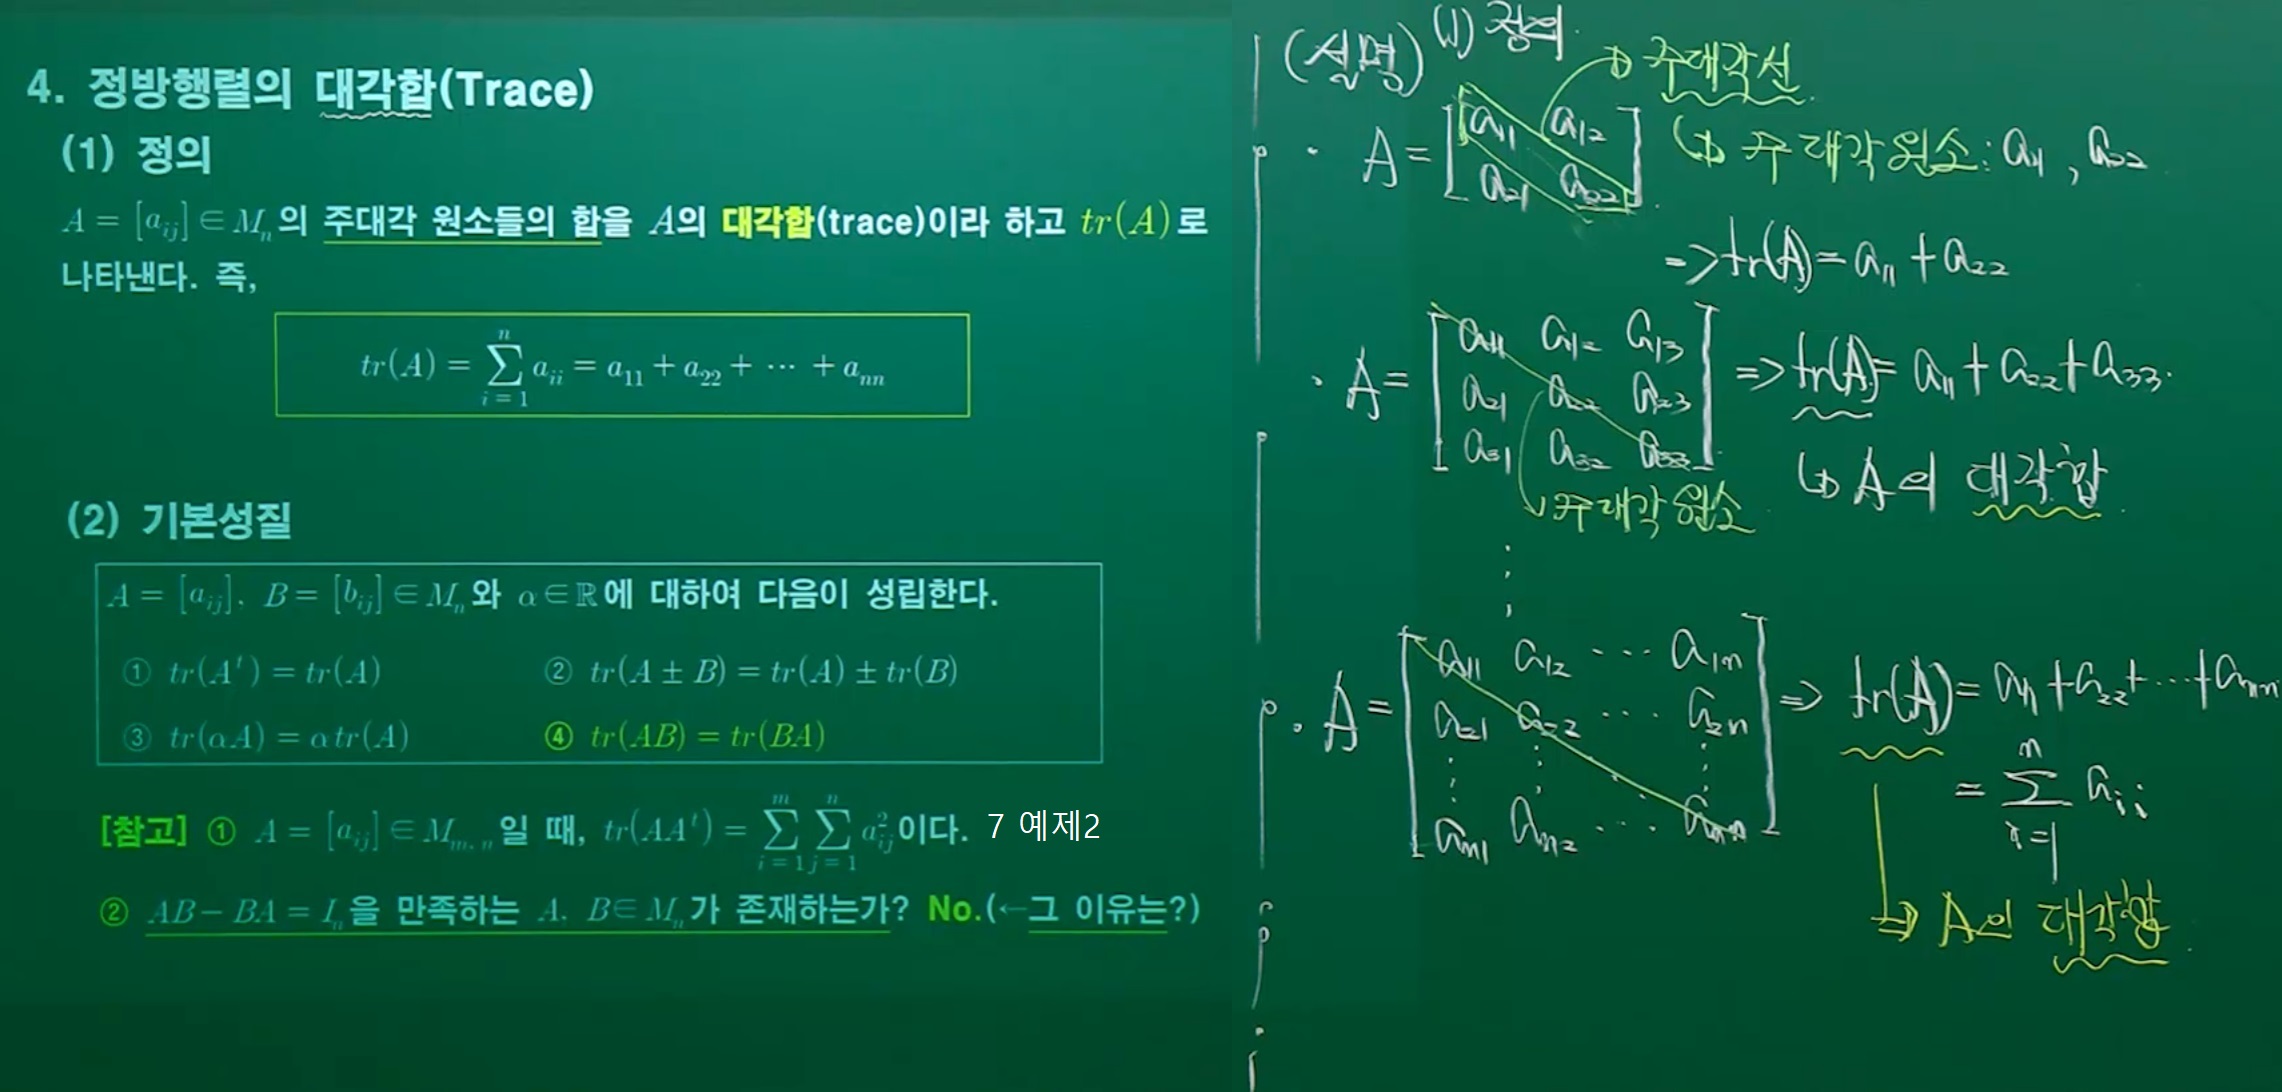 4. 정방행렬의 대각합(Trace)
(1) 정의
A = [a_{ij}] ∈ M_n의 주대각 원소들의 합을 A의 대각합(trace)이라 하고 tr(A)로
나타낸다. 즉,
tr(A) = \sum_{i=1}^{n} a_{ii} = a_{11} + a_{22} + ⋯ + a_{nn}
(2) 기본성질
A = [a_{ij}], B = [b_{ij}] ∈ M_n와 α ∈ ℝ에 대하여 다음이 성립한다.
① tr(A^t) = tr(A) ② tr(A ± B) = tr(A) ± tr(B)
③ tr(αA) = α tr(A) ④ tr(AB) = tr(BA)
[참고] ① A = [a_{ij}] ∈ M_{m,n}일 때, tr(AA^t) = \sum_{i=1}^{m} \sum_{j=1}^{n} a_{ij}^2이다. 7 예제2
② AB − BA = I_n을 만족하는 A, B ∈ M_n가 존재하는가? No.(←그 이유는?)
(설명) (1) 정의.
주대각선.
· A = [a_{11} a_{12}
a_{21} a_{22}]
주대각원소: a_{11}, a_{22}
=> tr(A) = a_{11} + a_{22}
· A = [a_{11} a_{12} a_{13}
a_{21} a_{22} a_{23}
a_{31} a_{32} a_{33}]
=> tr(A) = a_{11} + a_{22} + a_{33}.
A의 대각합.
주대각원소.
⋮
· A = [a_{11} a_{12} ⋯ a_{1n}
a_{21} a_{22} ⋯ a_{2n}
⋮ ⋮ ⋱ ⋮
a_{n1} a_{n2} ⋯ a_{nn}]
=> tr(A) = a_{11} + a_{22} + ⋯ + a_{nn}
= \sum_{i=1}^{n} a_{ii}
A의 대각합.